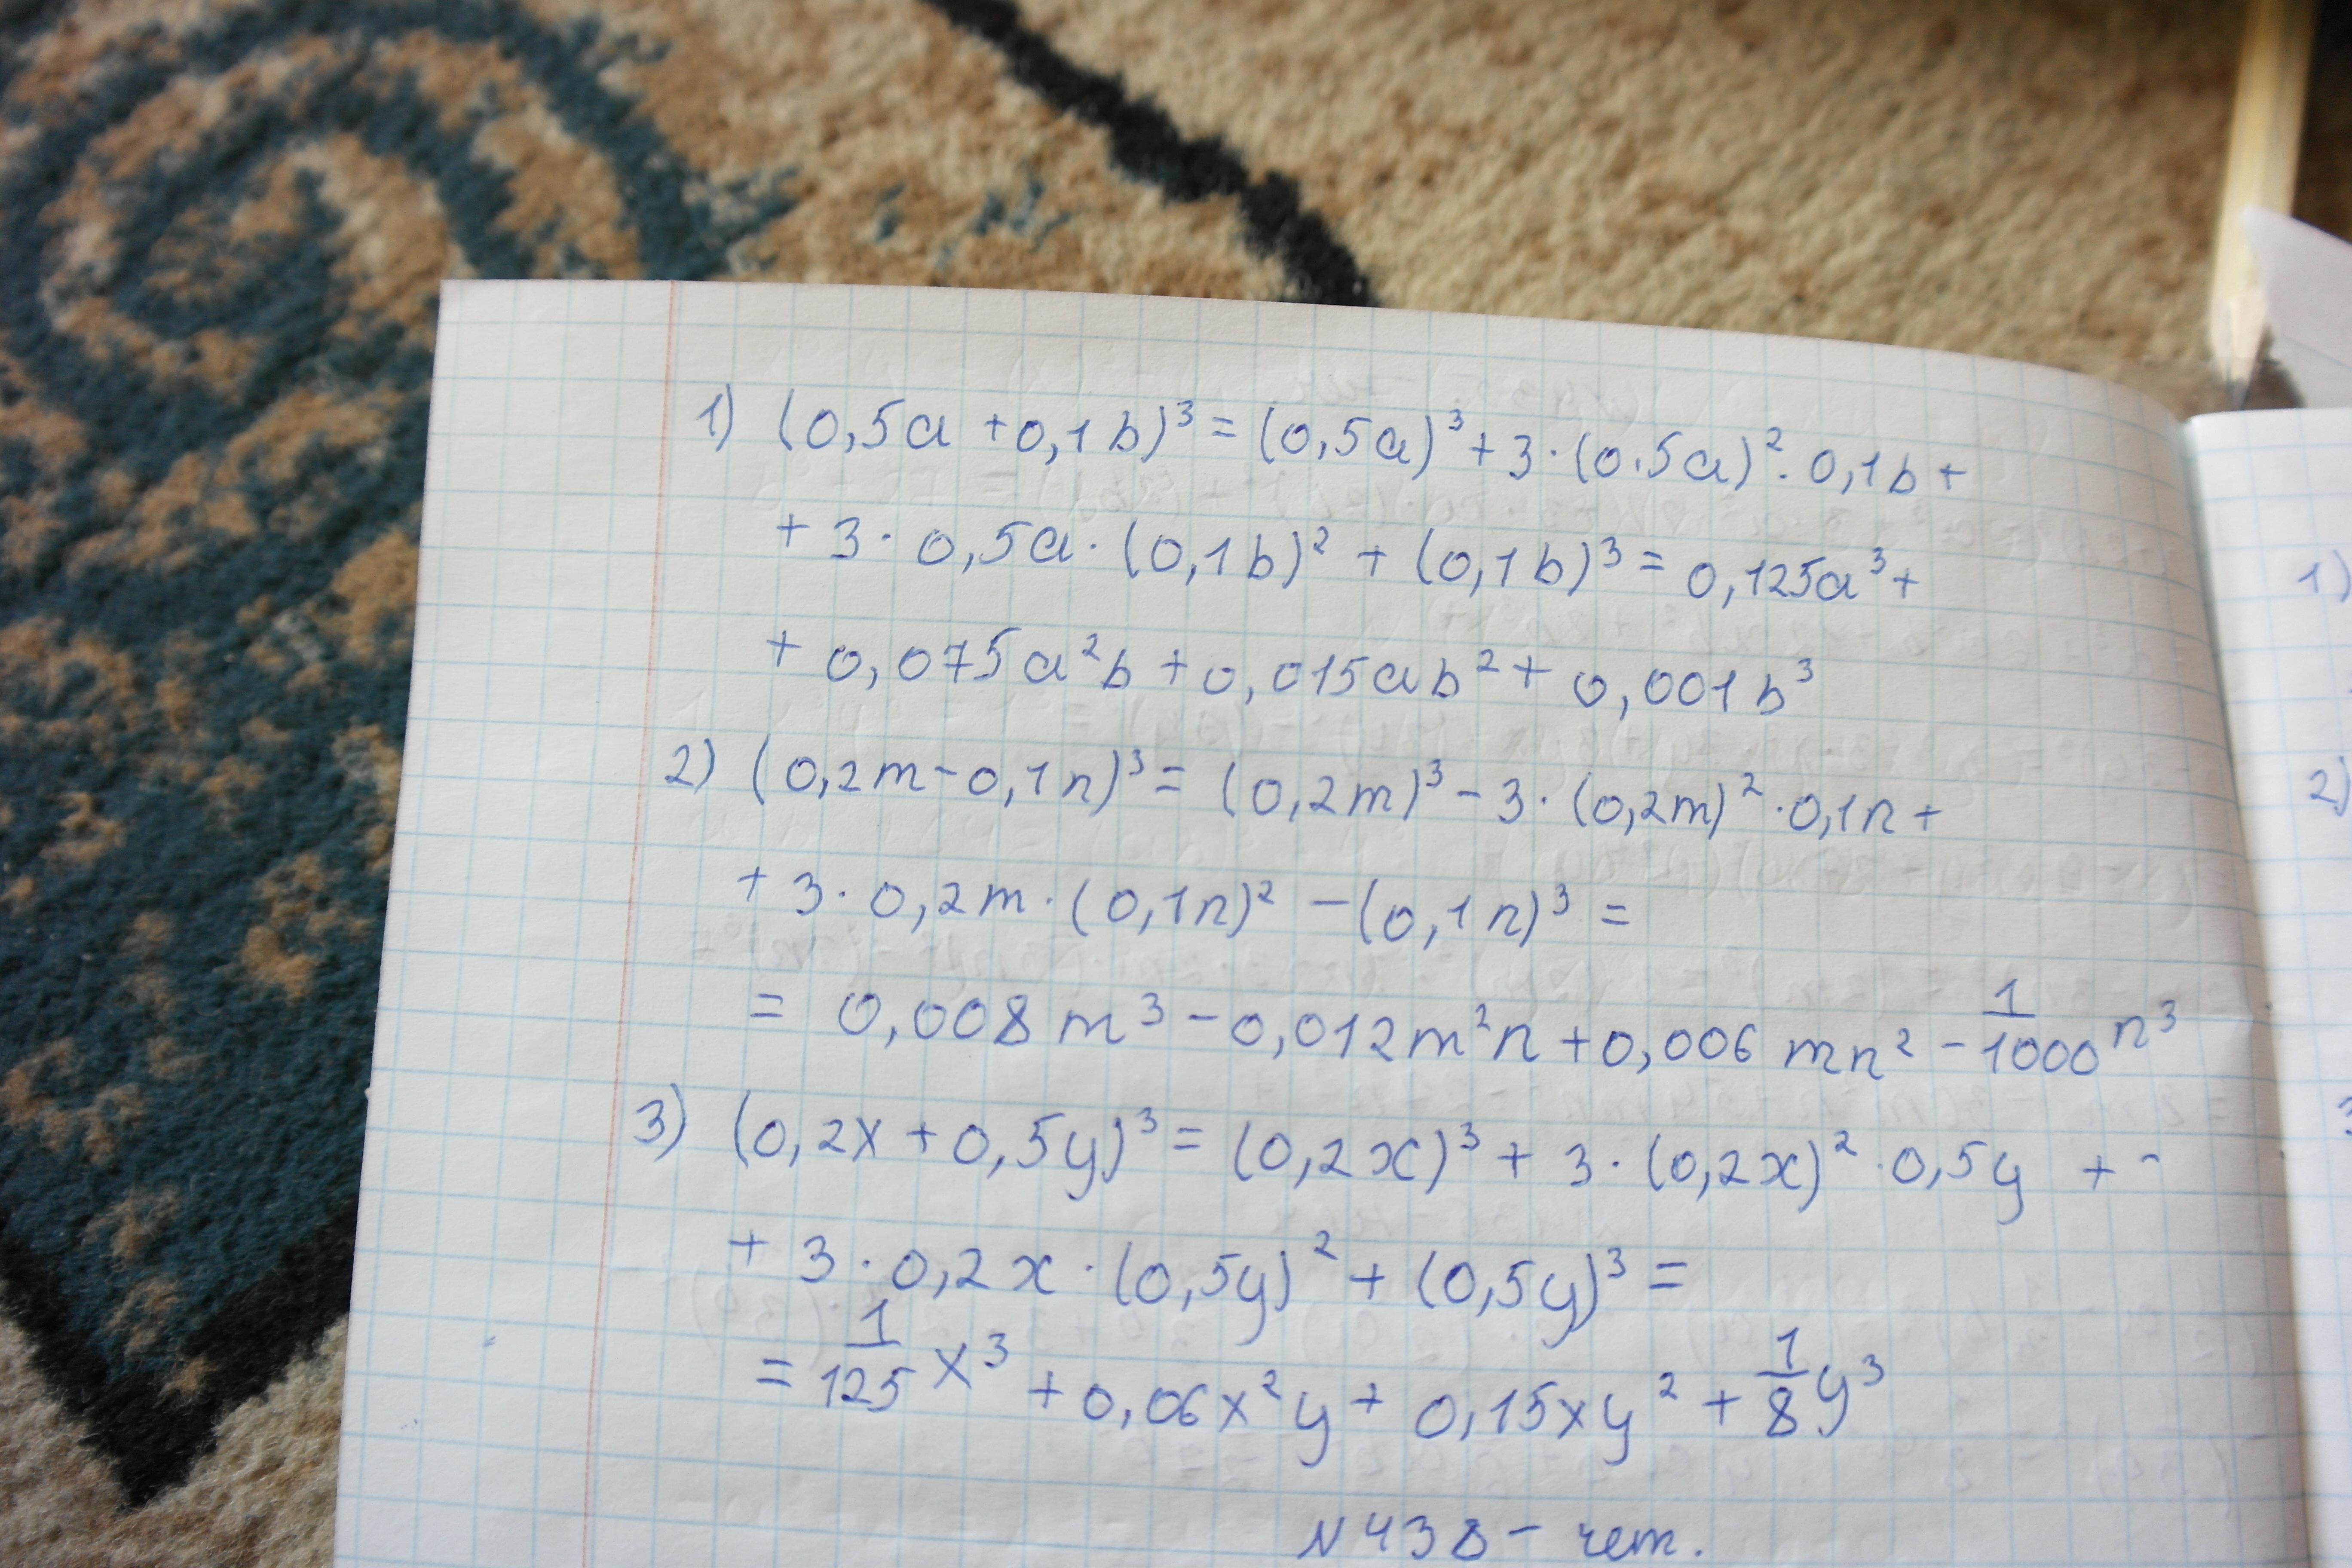 1) (0,5a + 0,1b)³ = (0,5a)³ + 3·(0.5a)²·0,1b +
+ 3·0,5a·(0,1b)² + (0,1b)³ = 0,125a³ +
+ 0,075a²b + 0,015ab² + 0,001b³
2) (0,2m - 0,1n)³ = (0,2m)³ - 3·(0,2m)²·0,1n +
+ 3·0,2m·(0,1n)² - (0,1n)³ =
= 0,008m³ - 0,012m²n + 0,006mn² - 1/1000 n³
3) (0,2x + 0,5y)³ = (0,2x)³ + 3·(0,2x)²·0,5y + -
+ 3·0,2x·(0,5y)² + (0,5y)³ =
= 1/125 x³ + 0,06x²y + 0,15xy² + 1/8 y³
N438 - чет.
1)
2)
3